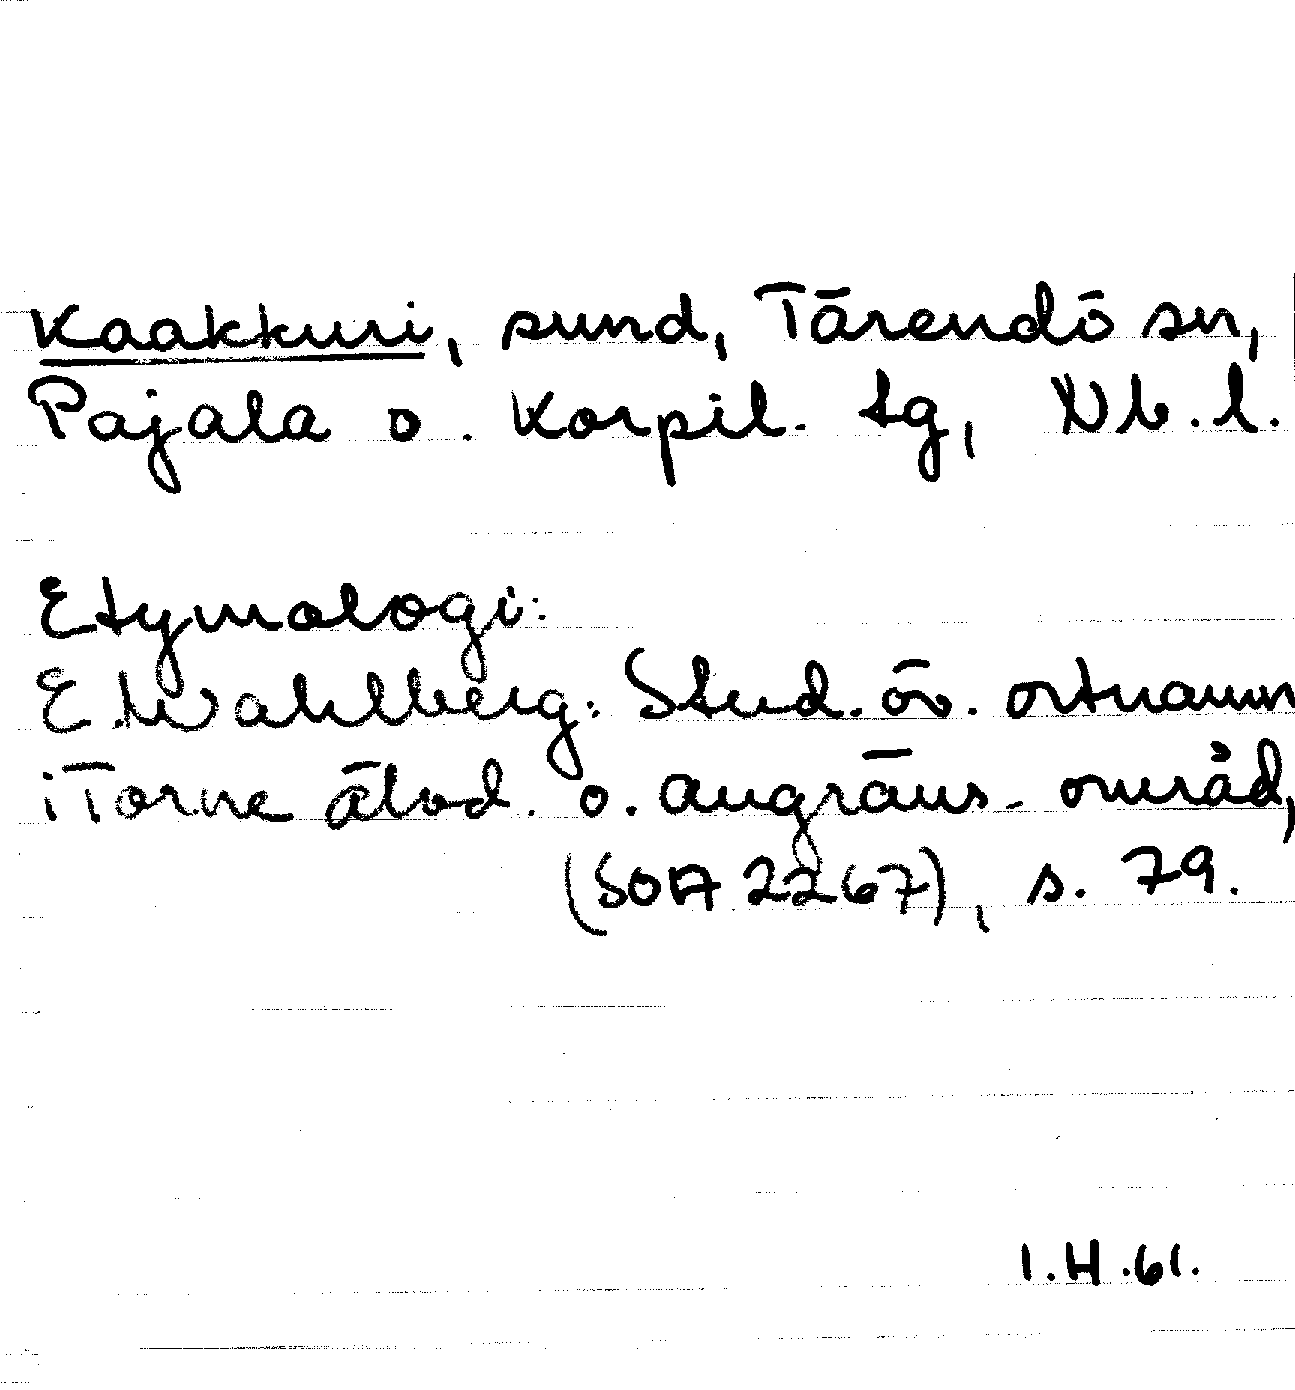 Kaakkuri, sund, Tärendö sn,
Pajala o. Korpil. tg, Nb. l.
Etymologi:
E. Wahlberg: Stud. öv. ortnamn
i Torne älvd. o. angräns. områd,
(SOA 2267), s. 79.
I.H.61.